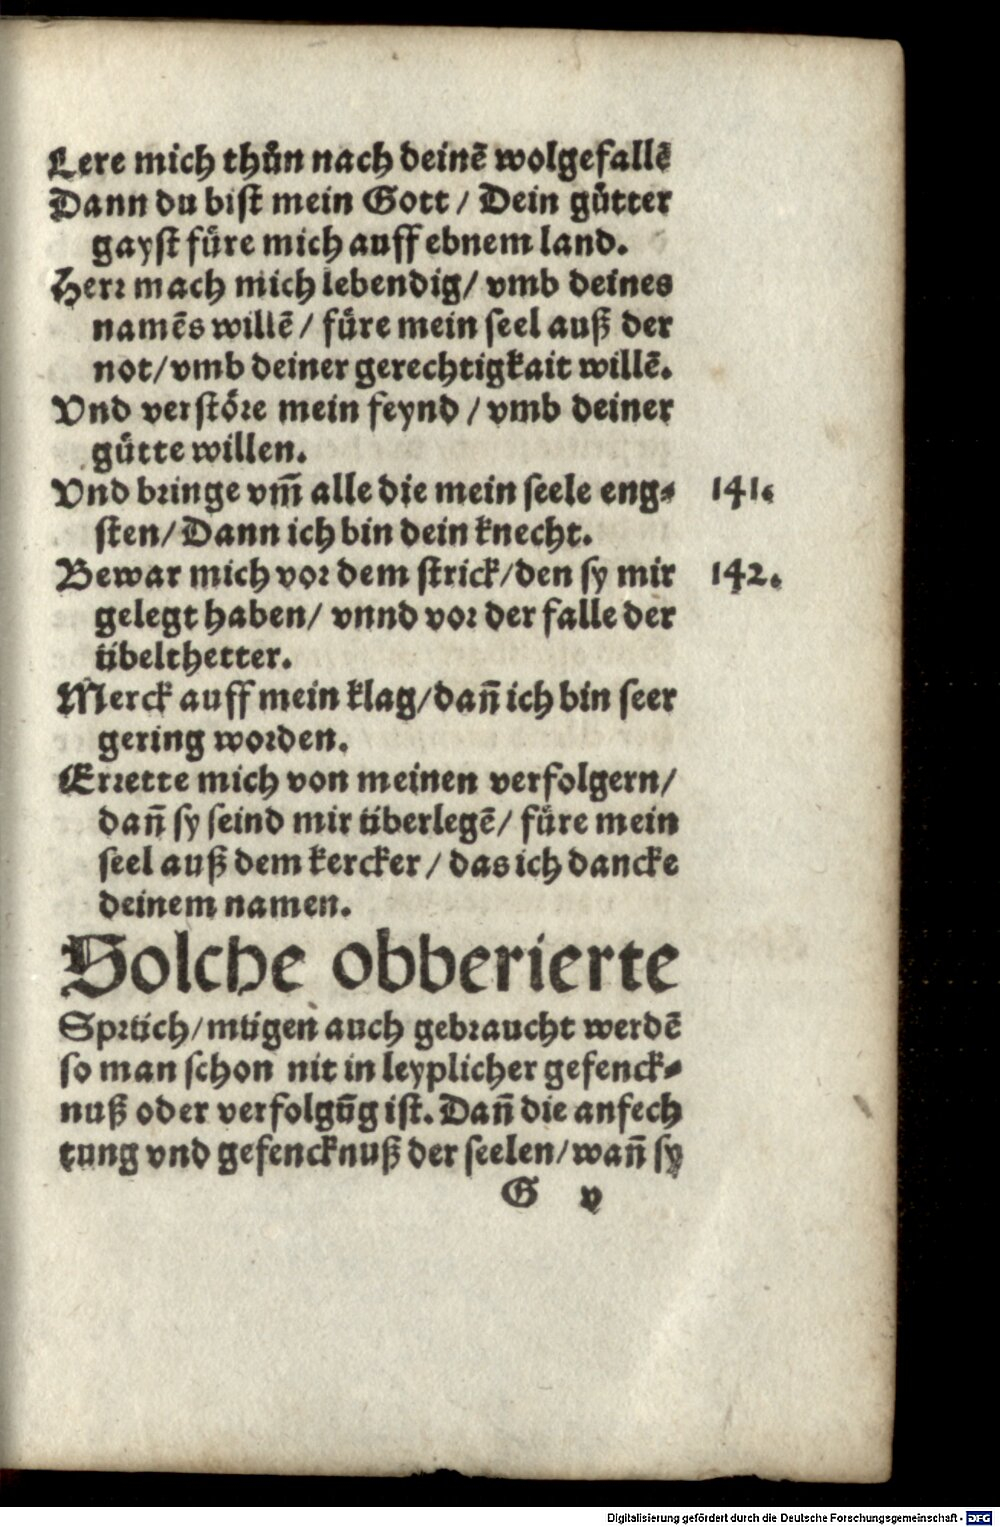 Lere mich thůn nach deinē wolgefallē
Dann du bist mein Gott / Dein gůtter
gayst fůre mich auff ebnem land.
Herr mach mich lebendig / vmb deines
namēs willē / fůre mein seel auß der
not / vmb deiner gerechtigkait willē.
Vnd verstöre mein feynd / vmb deiner
gůtte willen.
Vnd bringe vm̄ alle die mein seele eng⸗ 141.
sten / Dann ich bin dein knecht.
Bewar mich vor dem strick / den sy mir 142.
gelegt haben / vnnd vor der falle der
übelthetter.
Merck auff mein klag / dañ ich bin seer
gering worden.
Errette mich von meinen verfolgern /
dañ sy seind mir überlegē / fůre mein
seel auß dem kercker / das ich dancke
deinem namen.
Solche obberierte
Sprüch / mügen auch gebraucht werdē
so man schon nit in leyplicher gefenck⸗
nuß oder verfolgūg ist. Dañ die anfech
tung vnd gefencknuß der seelen / wañ sy
G v
Digitalisierung gefördert durch die Deutsche Forschungsgemeinschaft - DFG